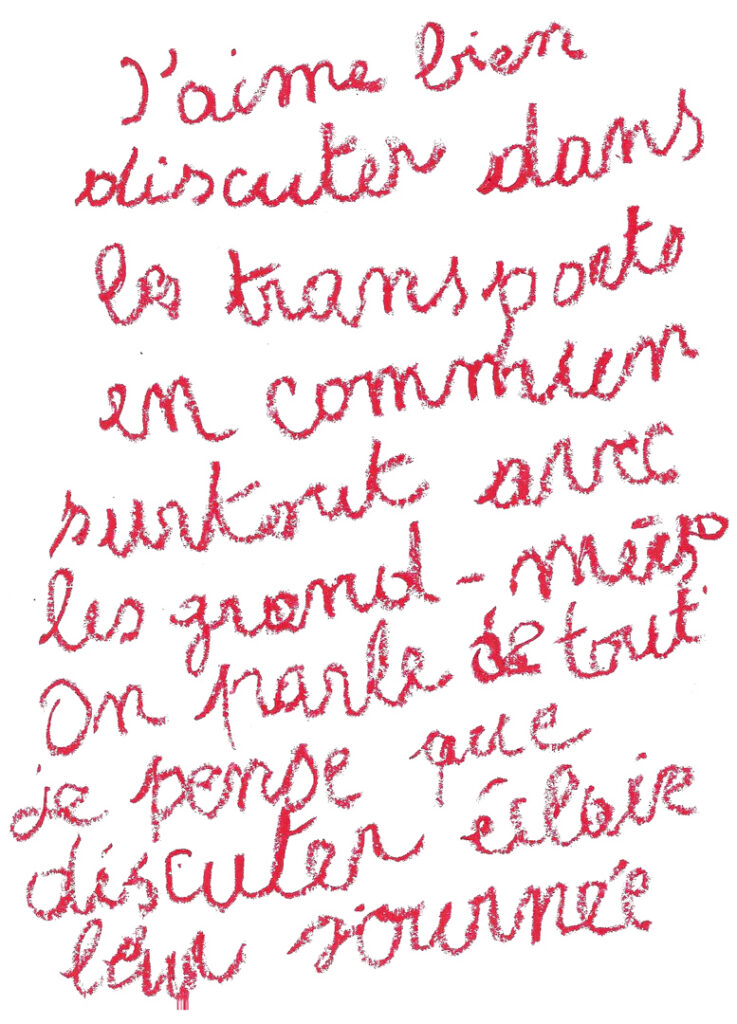 J'aime bien
discuter dans
les transports
en commun
surtout avec
les grand-mères
On parle de tout
je pense que
discuter éclaire
leur journée